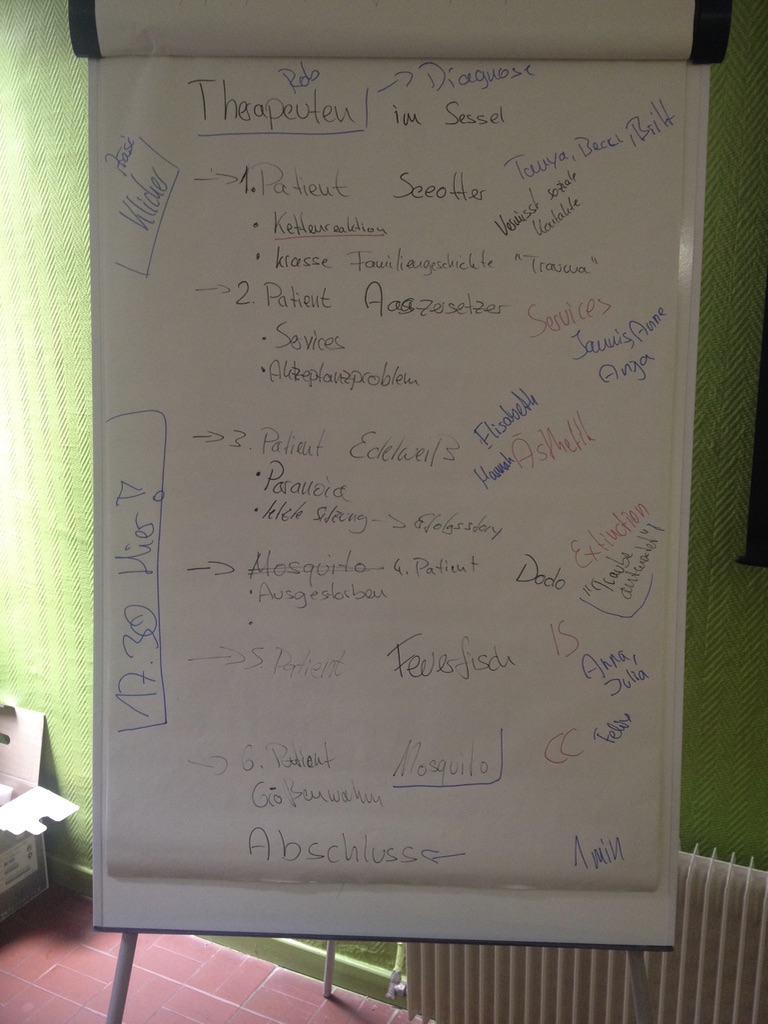 Rob
Therapeuten im Sessel
-> Diagnose
Klicker
-> 1. Patient Seeotter
Tanya, Becci, Britt
Vermisst soziale
Kontakte
• Kettenreaktion
• krasse Familiengeschichte "Trauma"
-> 2. Patient Aaszersetzer
Services
• Services
Jannis, Anne
Anja
• Akzeptanzproblem
-> 3. Patient Edelweiß
Elisabeth
Hannah
Ästhetik
• Paranoia
• letzte Sitzung -> Erfolgsstory
-> Mosquito 4. Patient Dodo
Extinction
"Traube
• Ausgestorben
•
-> 5. Patient Feuerfisch
IS
Anna,
Julia
-> 6. Patient Mosquito
CC
Felix
Größenwahn
Abschluss
1 min
17.30 Hier!